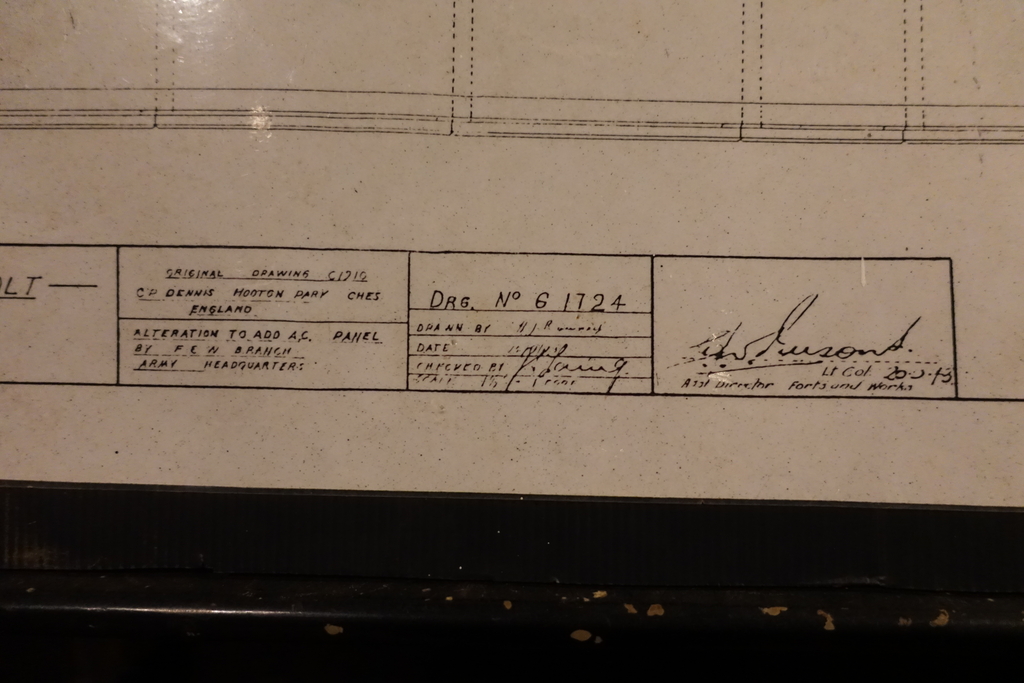 LT —
ORIGINAL DRAWING
C.D. DENNIS HOOTON PARK CHES
ENGLAND
ALTERATION TO ADD A.C. PANEL
BY F E W BRANCH
ARMY HEADQUARTERS
DRG. Nº 61724
DRAWN BY
DATE
CHECKED BY
SCALE
Lt Col.
Asst Director Forts and Works